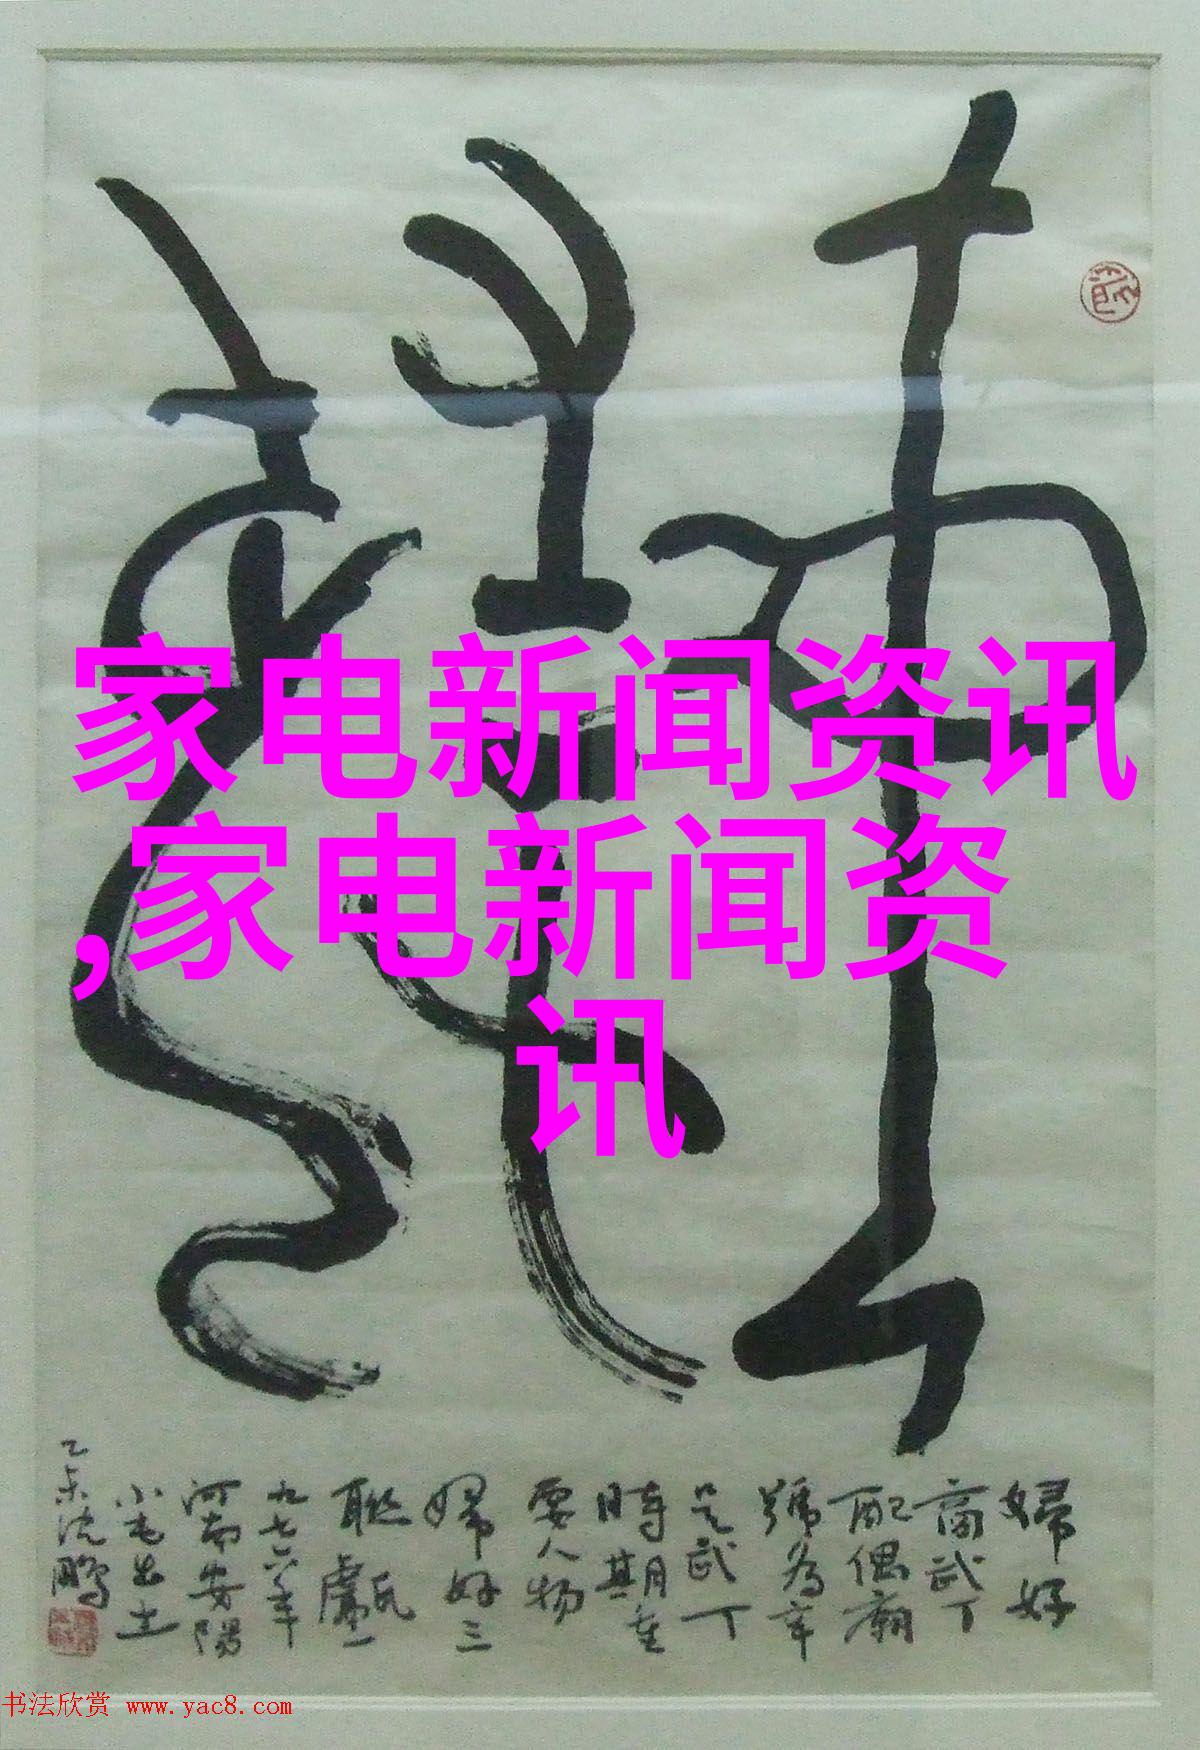 家电新闻资讯
,家电新闻资
讯
婦好
商武丁
配偶廟
號为辛
是武丁
時期重
要人物
婦好三
聯甗一
九七六年
河南安陽
小屯出土
乙未沈鹏
书法欣赏 www.yac8.com